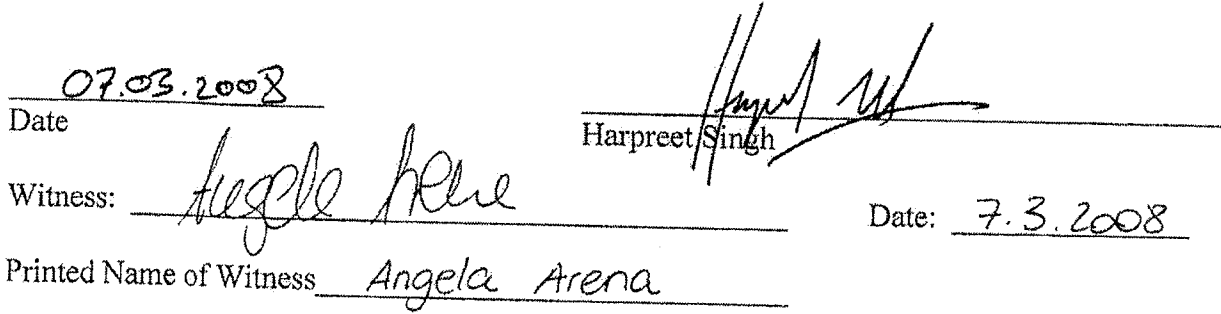 07.03.2008
Date
Harpreet Singh
Witness: Angela Arena Date: 7.3.2008
Printed Name of Witness Angela Arena